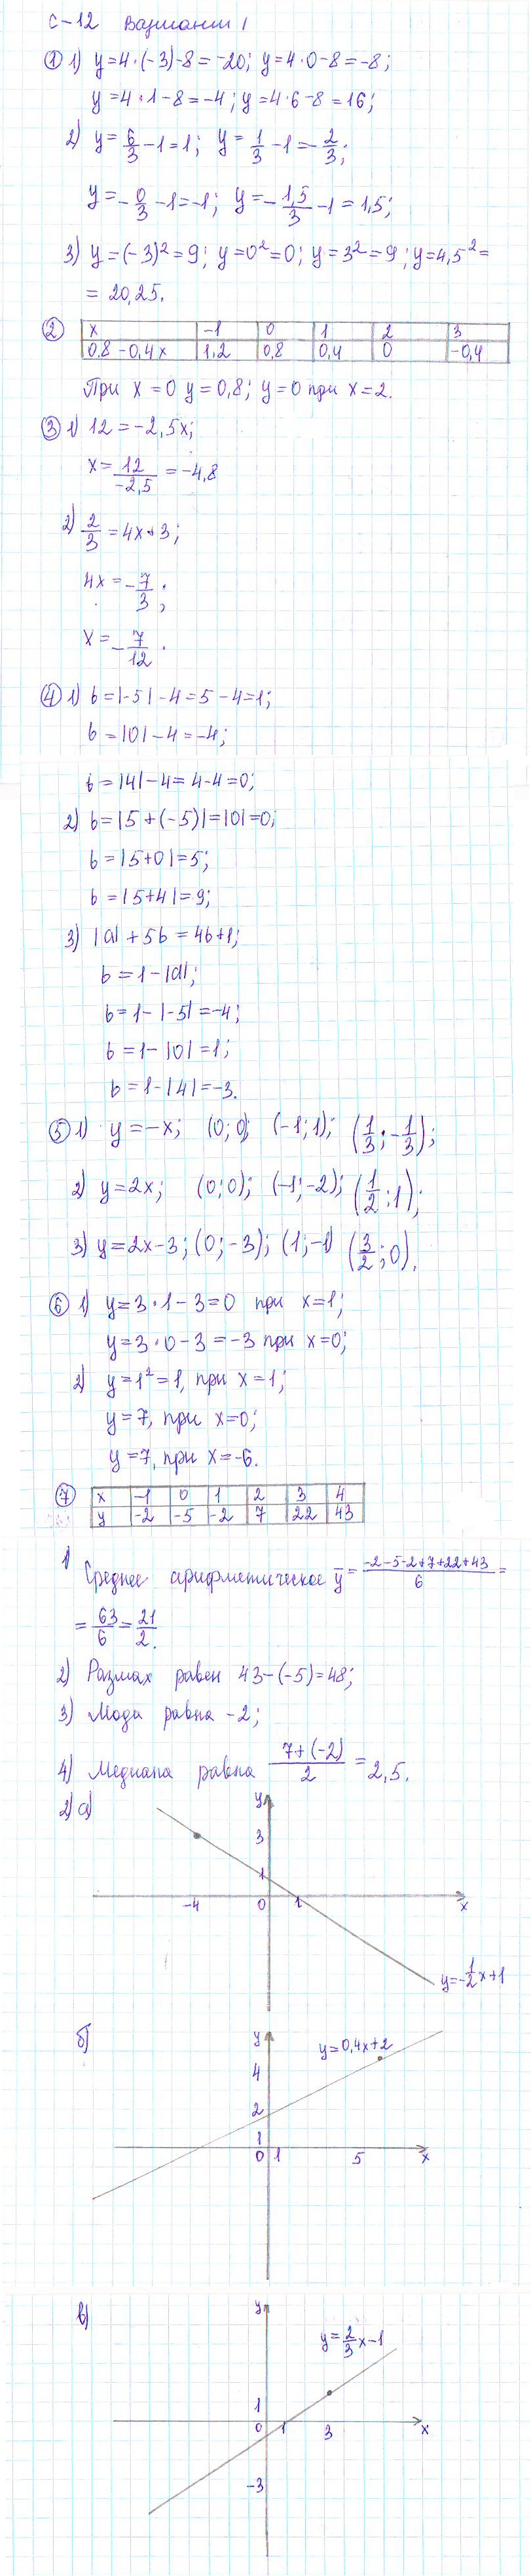 С-12 Вариант 1
① 1) y=4·(-3)-8=-20; y=4·0-8=-8;
y=4·1-8=-4; y=4·6-8=16;
2) y=6/3-1=1; y=1/3-1=-2/3;
y=-0/3-1=-1; y=-1,5/3-1=1,5;
3) y=(-3)²=9; y=0²=0; y=3²=9; y=4,5²=
=20,25.
② x -1 0 1 2 3
0,8-0,4x 1,2 0,8 0,4 0 -0,4
При x=0 y=0,8; y=0 при x=2.
③ 1) 12=-2,5x;
x=12/-2,5=-4,8
2) 2/3=4x+3;
4x=-7/3;
x=-7/12.
④ 1) b=|-5|-4=5-4=1;
b=|0|-4=-4;
b=|4|-4=4-4=0;
2) b=|5+(-5)|=|0|=0;
b=|5+0|=5;
b=|5+4|=9;
3) |a|+5b=4b+1;
b=1-|a|;
b=1-|-5|=-4;
b=1-|0|=1;
b=1-|4|=-3.
⑤ 1) y=-x; (0;0); (-1;1); (1/3;-1/3);
2) y=2x; (0;0); (-1;-2); (1/2;1);
3) y=2x-3; (0;-3); (1;-1) (3/2;0).
⑥ 1) y=3·1-3=0 при x=1;
y=3·0-3=-3 при x=0;
2) y=1²=1, при x=1;
y=7, при x=0;
y=7, при x=-6.
⑦ x -1 0 1 2 3 4
y -2 -5 -2 7 22 43
1) Среднее арифметическое y̅=-2-5-2+7+22+43/6=
=63/6=21/2.
2) Размах равен 43-(-5)=48;
3) Мода равна -2;
4) Медиана равна 7+(-2)/2=2,5.
2) а)
y
3
1
-4 0 1 x
y=-1/2x+1
б)
y
y=0,4x+2
4
2
1
0 1 5 x
в)
y
y=2/3x-1
1
0 1 3 x
-3